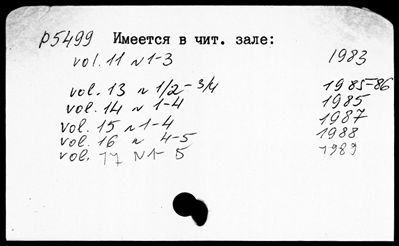 p5499 Имеется в чит. зале:
vol. 11 n 1-3 1983
vol. 13 n 1/2-3/4 1985-86
vol. 14 n 1-4 1985
vol. 15 n 1-4 1987
vol. 16 n 4-5 1988
vol. 17 N 1-5 1989